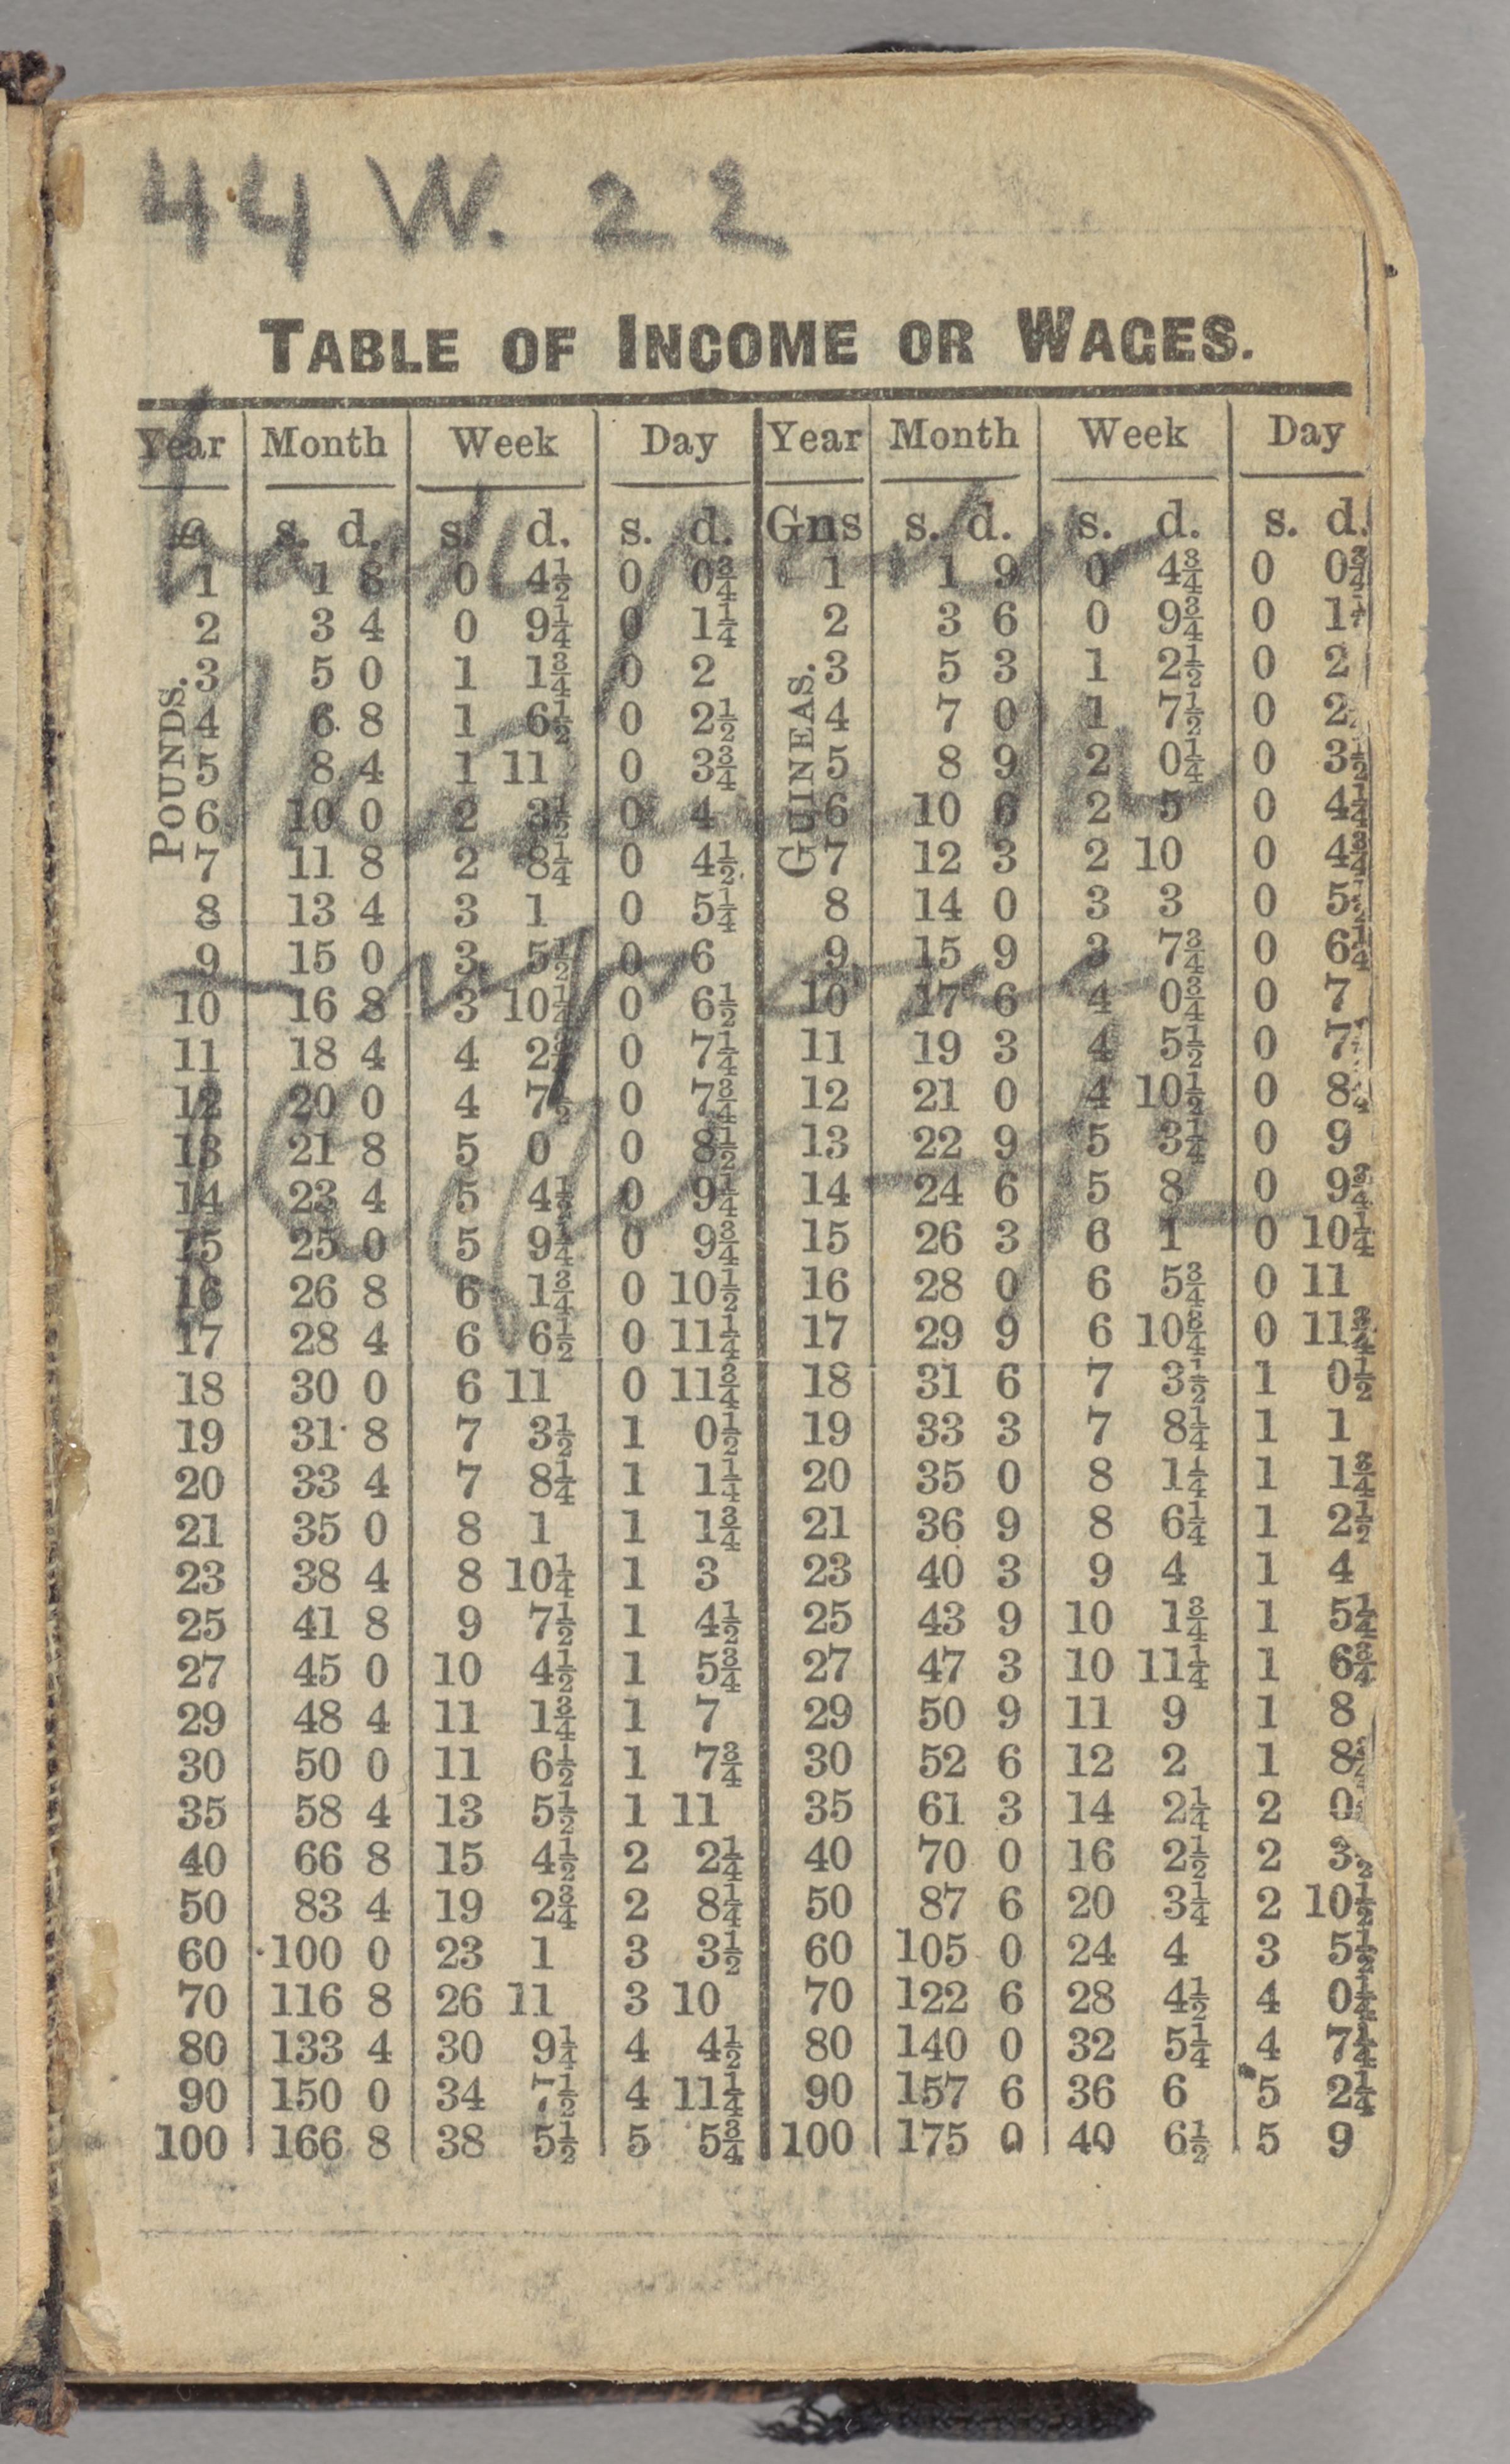 44 W. 22
TABLE OF INCOME OR WAGES.
Year Month Week Day Year Month Week Day
£ s. d. s. d. s. d. Gns s. d. s. d. s. d.
POUNDS.
GUINEAS.
1 1 8 0 4½ 0 0¾ 1 1 9 0 4¾ 0 0¾
2 3 4 0 9¼ 0 1¼ 2 3 6 0 9¾ 0 1
3 5 0 1 1¾ 0 2 3 5 3 1 2½ 0 2
4 6 8 1 6½ 0 2½ 4 7 0 1 7½ 0 2
5 8 4 1 11 0 3¾ 5 8 9 2 0¼ 0 3½
6 10 0 2 3½ 0 4 6 10 6 2 5 0 4¼
7 11 8 2 8¼ 0 4½ 7 12 3 2 10 0 4¾
8 13 4 3 1 0 5¼ 8 14 0 3 3 0 5½
9 15 0 3 5½ 0 6 9 15 9 3 7¾ 0 6¼
10 16 8 3 10¼ 0 6½ 10 17 6 4 0¾ 0 7
11 18 4 4 2¾ 0 7¼ 11 19 3 4 5½ 0 7
12 20 0 4 7½ 0 7¾ 12 21 0 4 10½ 0 8
13 21 8 5 0 0 8½ 13 22 9 5 3¼ 0 9
14 23 4 5 4½ 0 9¼ 14 24 6 5 8 0 9¾
15 25 0 5 9¼ 0 9¾ 15 26 3 6 1 0 10¼
16 26 8 6 1¾ 0 10½ 16 28 0 6 5¾ 0 11
17 28 4 6 6½ 0 11¼ 17 29 9 6 10¾ 0 11¾
18 30 0 6 11 0 11¾ 18 31 6 7 3½ 1 0½
19 31 8 7 3½ 1 0½ 19 33 3 7 8¼ 1 1
20 33 4 7 8¼ 1 1¼ 20 35 0 8 1¼ 1 1¾
21 35 0 8 1 1 1¾ 21 36 9 8 6¼ 1 2½
23 38 4 8 10¼ 1 3 23 40 3 9 4 1 4
25 41 8 9 7½ 1 4½ 25 43 9 10 1¾ 1 5¼
27 45 0 10 4½ 1 5¾ 27 47 3 10 11¼ 1 6¾
29 48 4 11 1¾ 1 7 29 50 9 11 9 1 8
30 50 0 11 6½ 1 7¾ 30 52 6 12 2 1 8
35 58 4 13 5½ 1 11 35 61 3 14 2¼ 2 0
40 66 8 15 4½ 2 2¼ 40 70 0 16 2½ 2 3½
50 83 4 19 2¾ 2 8¼ 50 87 6 20 3¼ 2 10½
60 100 0 23 1 3 3½ 60 105 0 24 4 3 5½
70 116 8 26 11 3 10 70 122 6 28 4½ 4 0¼
80 133 4 30 9¼ 4 4½ 80 140 0 32 5¼ 4 7¼
90 150 0 34 7½ 4 11¼ 90 157 6 36 6 5 2¼
100 166 8 38 5½ 5 5¾ 100 175 0 40 6½ 5 9